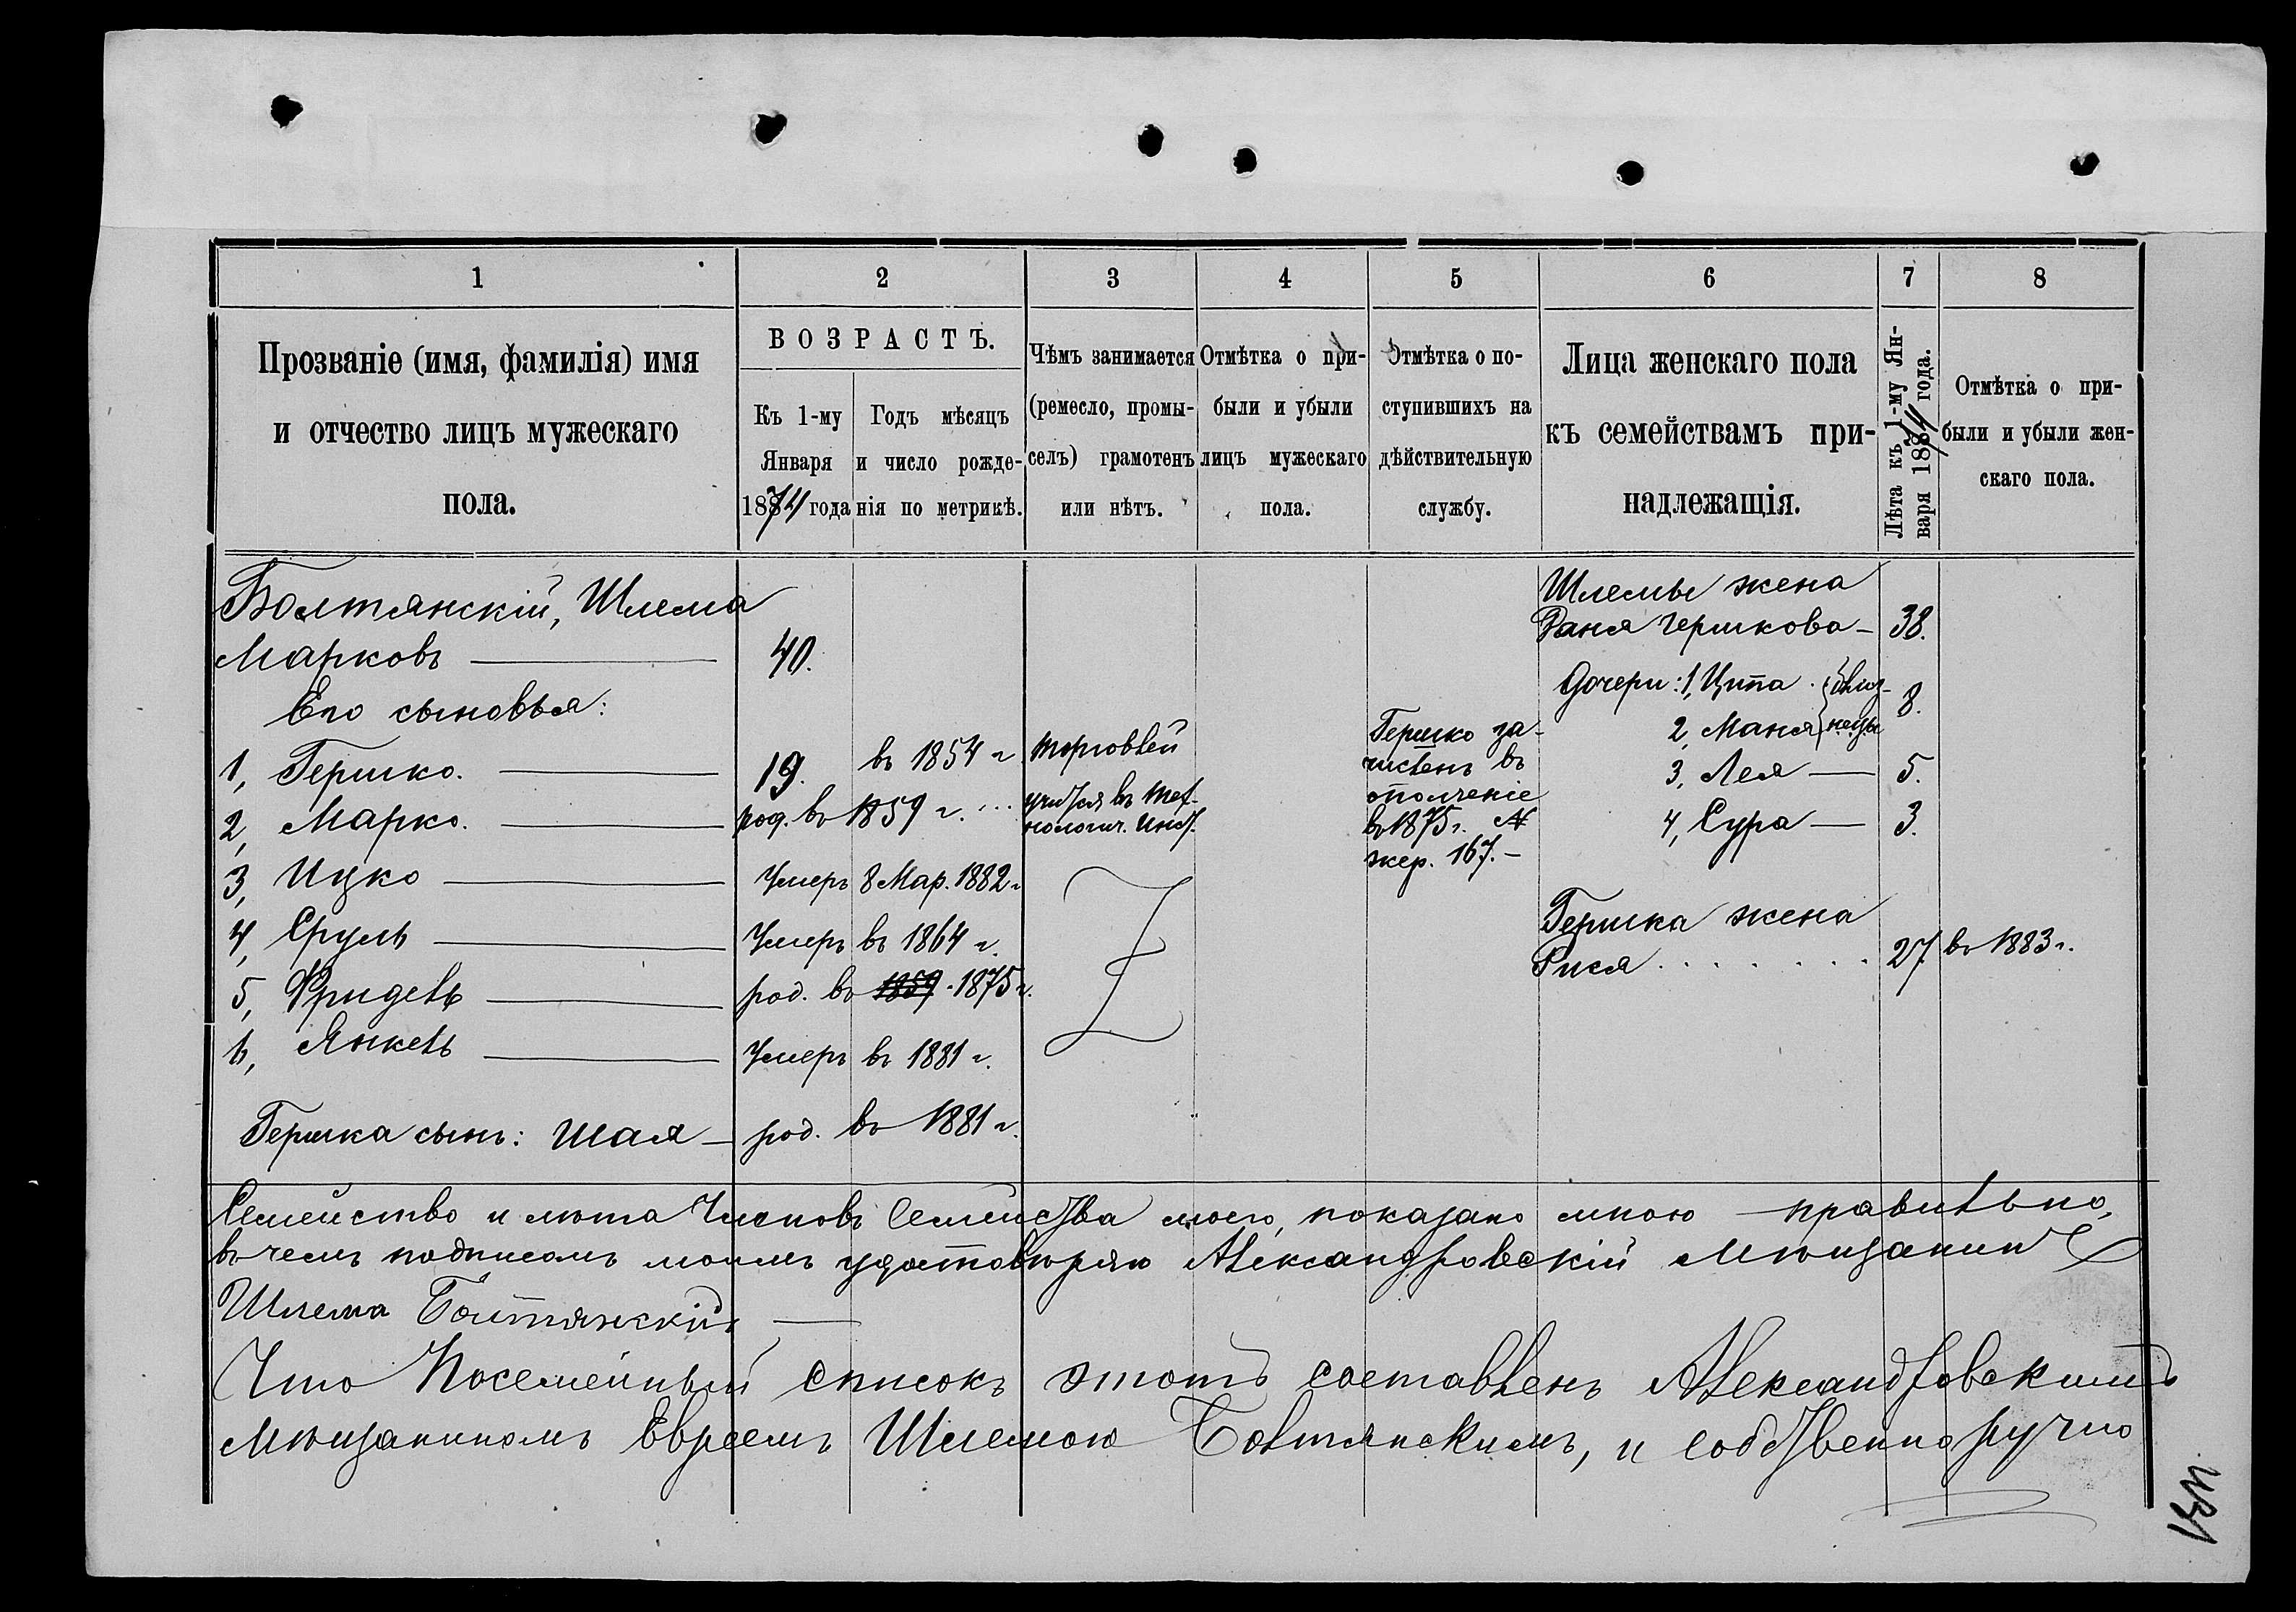 1 2 3 4 5 6 7 8
Прозваніе (имя, фамилія) имя
и отчество лицъ мужескаго
пола.
ВОЗРАСТЪ.
Къ 1-му
Января
1874 года
Годъ мѣсяцъ
и число рожде-
нія по метрикѣ.
Чѣмъ занимается
(ремесло, промы-
селъ) грамотенъ
или нѣтъ.
Отмѣтка о при-
были и убыли
лицъ мужескаго
пола.
Отмѣтка о по-
ступившихъ на
дѣйствительную
службу.
Лица женскаго пола
къ семействамъ при-
надлежащія.
Лѣта къ 1-му Ян-
варя 1874 года.
Отмѣтка о при-
были и убыли жен-
скаго пола.
Болтянскій, Шлема
Марковъ — 40.
Его сыновья:
1, Гершко. — 19. въ 1854 г торговлей
2, Марко. — род. въ 1859 г. ... учится въ Тех-
нологич. Инст.
3, Ицко — Умеръ 8 Мар. 1882 г
4, Сруль — Умеръ въ 1864 г.
5, Фридель — род. въ 1859 1875 г.
6, Янкель — Умеръ въ 1881 г.
Гершка сынъ: Шая — род. въ 1881 г.
Гершко за-
численъ въ
ополченіе
въ 1875 г. №
жер. 167. —
Шлемы жена
Ханя Гершкова — 38.
Дочери: 1, Ципа близ-
2, Маня нецы 8.
3, Лея — 5.
4, Сура — 3.
Гершка жена
Рися . . . . . . . 27 въ 1883 г.
Семейство и лѣта Членовъ Семейства моего, показано мною правильно,
въ чемъ подписомъ моимъ удостовѣряю Александровскій Мѣщанинъ
Шлема Болтянскій —
Что Посемейный списокъ этотъ составленъ Александровскимъ
Мѣщаниномъ Евреемъ Шлемою Болтянскимъ, и собственноручно